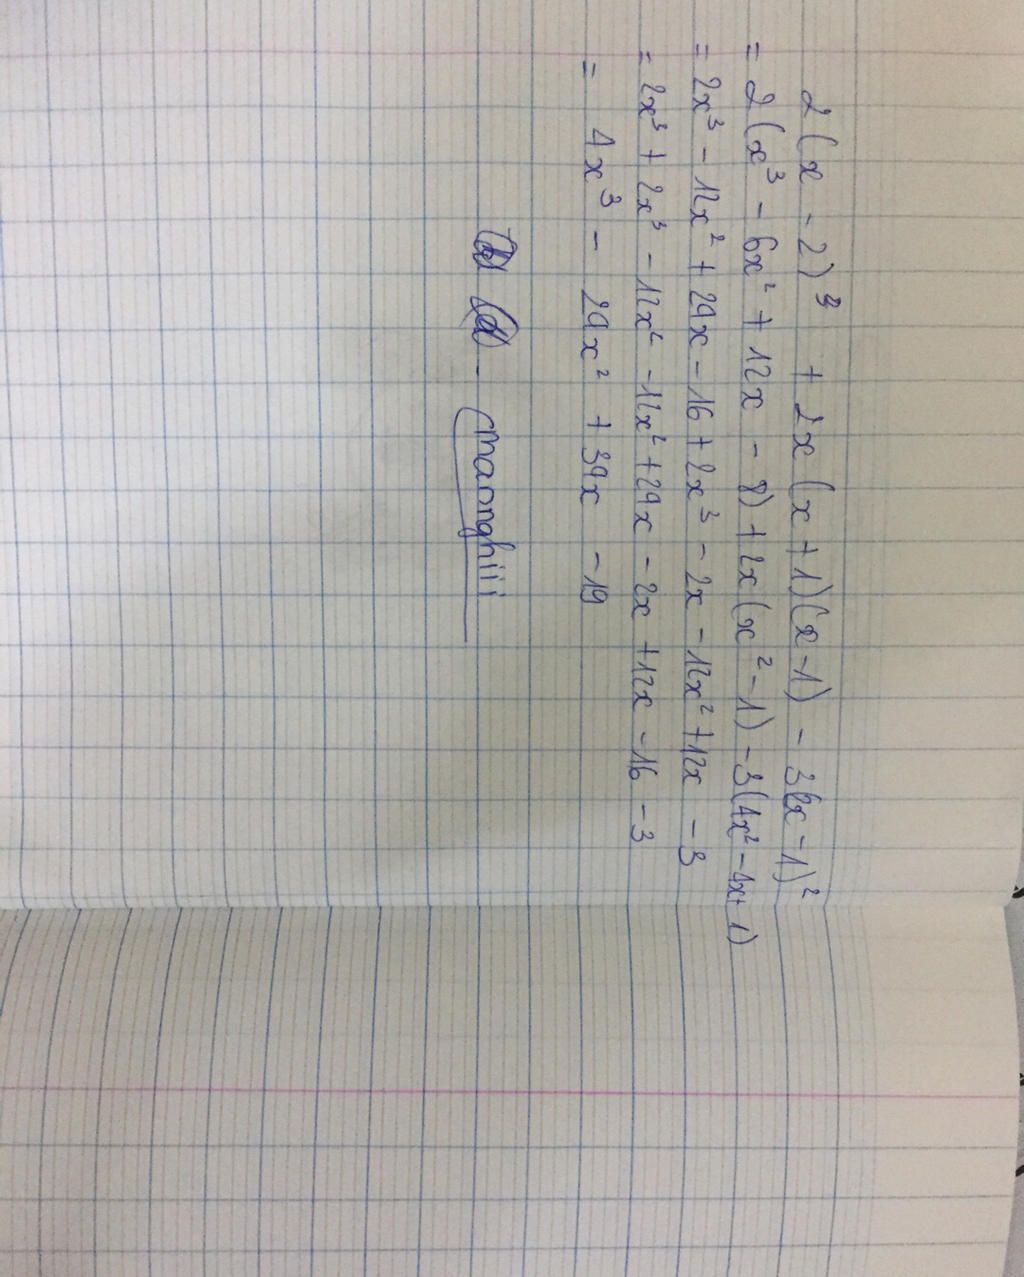 2(x - 2)³ + 2x(x + 1)(x - 1) - 3(2x - 1)²
= 2(x³ - 6x² + 12x - 8) + 2x(x² - 1) - 3(4x² - 4x + 1)
= 2x³ - 12x² + 24x - 16 + 2x³ - 2x - 12x² + 12x - 3
= 2x³ + 2x³ - 12x² - 12x² + 24x - 2x + 12x - 16 - 3
= 4x³ - 24x² + 34x - 19
maonghiii